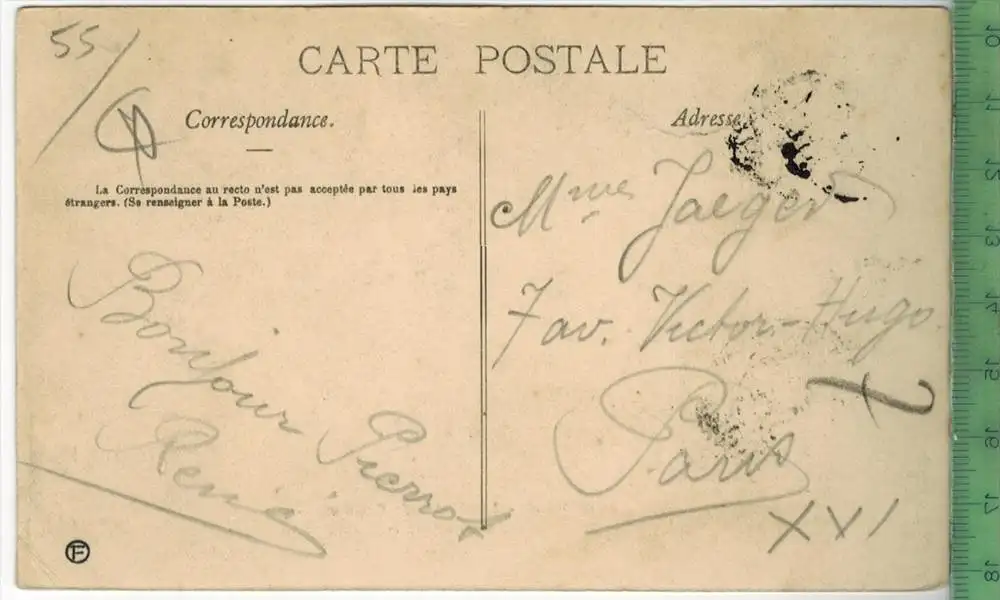 55/
CARTE POSTALE
Correspondance.
La Correspondance au recto n'est pas acceptée par tous les pays
étrangers. (Se renseigner à la Poste.)
Bonjour Pierrot
René
Adresse
Mme Jaeger
7 av. Victor-Hugo.
Paris
XVI